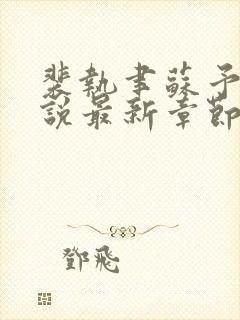 裴執聿蘇予
說最新章節
鄧飛